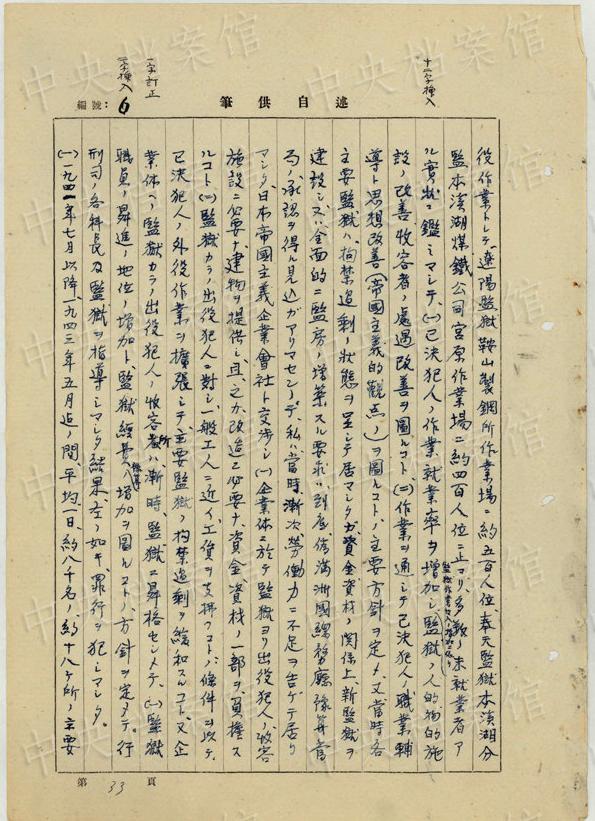 中央档案馆
十一字挿入
一字訂正
一字挿入
編號：6
筆供自述
役作業トシテ、遼陽監獄鞍山製鋼所作業場ニ約五百人位、奉天監獄本溪湖分
監本溪湖煤鐵公司宮原作業場ニ約四百人位ニ止マリ、多数ノ未就業者ア
ル實狀ニ鑑ミマシテ、(一)已決犯人ノ作業就業率ヲ増加シ、監獄ノ人的物的施
設ノ改善收容者ノ處遇改善ヲ圖ルコト、(二)作業ヲ通シテ已決犯人ノ職業輔
導ト思想改善(帝國主義的觀点ノ)ヲ圖ルコトノ主要方針ヲ定メ、又當時各
主要監獄ハ拘禁過剩ノ狀態ヲ呈シテ居マシタガ資金資材ノ関係上、新監獄ヲ
建設シ又ハ全面的ニ監房ノ増築スル要求ハ到底偽滿洲國總務廳豫算當
局ノ承認ヲ得ル見込ガアリマセンノデ、私ハ當時漸次勞働力ニ不足ヲ告ゲテ居リ
マシタ日本帝國主義企業會社ト交渉シ(一)企業体ニ於テ監獄ヨリ出役犯人ノ收容
施設ニ必要ナ建物ヲ提供シ、且、之カ改造ニ必要ナ資金資材ノ一部ヲ負擔ス
ルコト(二)監獄カラノ出役犯人ニ對シ一般工人ニ近イ工賃ヲ支拂フコトノ條件ヲ以テ、
已決犯人ノ外役作業ヲ擴張シテ、主要監獄ノ拘禁過剩ヲ緩和スルコト、又企
業体ヘノ監獄カラノ出役犯人ノ收容所ハ漸時監獄ニ昇格セシメテ、(一)監獄
職員ノ昇進ノ地位ノ増加ト、監獄經費ノ増加ヲ圖ルコトノ方針ヲ定メテ、行
刑司ノ各科長及監獄ヲ指導シマシタ結果、左ノ如キ罪行ヲ犯シマシタ。
(一)一九四一年七月以降、一九四三年五月迄ノ間、平均一日、約八千名ノ、約十八ヶ所ノ主要
第33頁